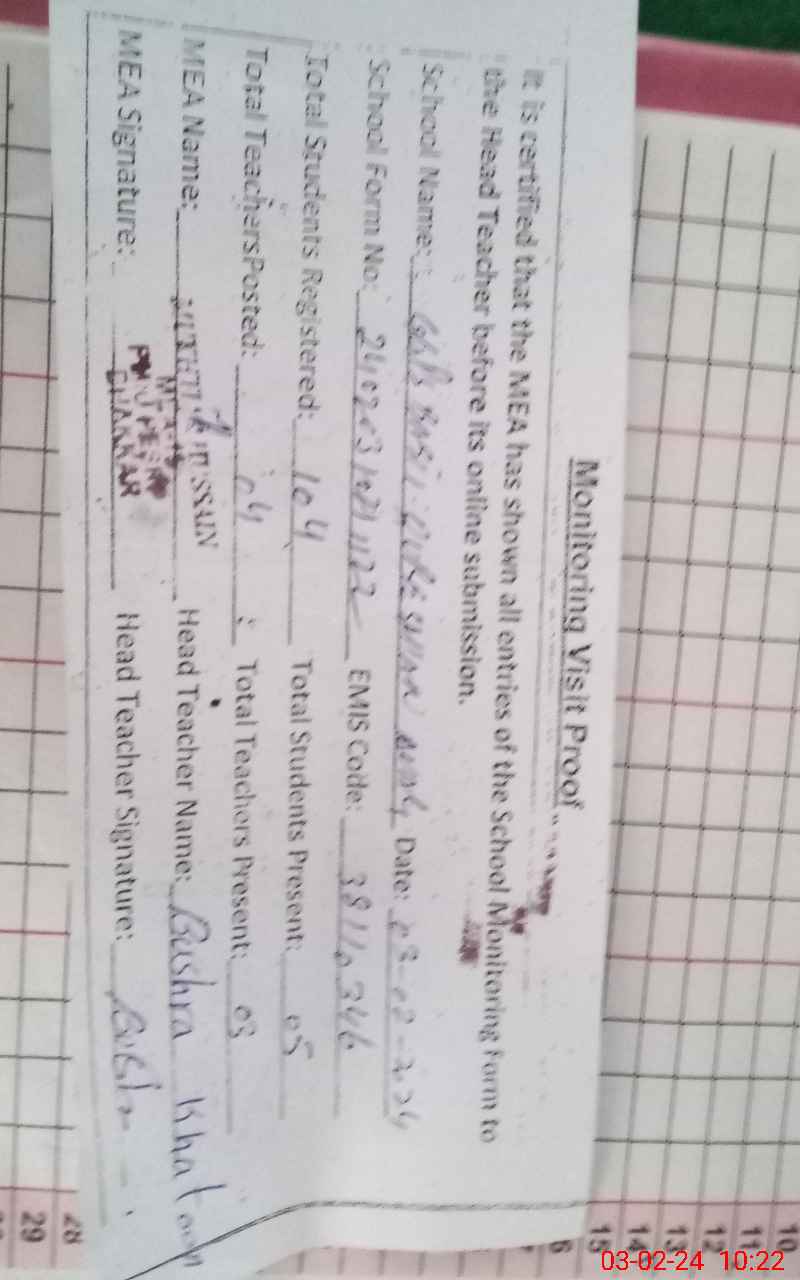 Monitoring Visit Proof
It is certified that the MEA has shown all entries of the School Monitoring Form to
the Head Teacher before its online submission.
School Name: Date: 03-02-2024
School Form No: EMIS Code: 38110346
Total Students Registered: 104 Total Students Present: 05
Total TeachersPosted: 04 Total Teachers Present: 03
MEA Name: HUSSAIN Head Teacher Name: Bushra Khatoon
MEA Signature: BHAKKAR Head Teacher Signature:
10
11
12
13
14
15
28
29
03-02-24 10:22